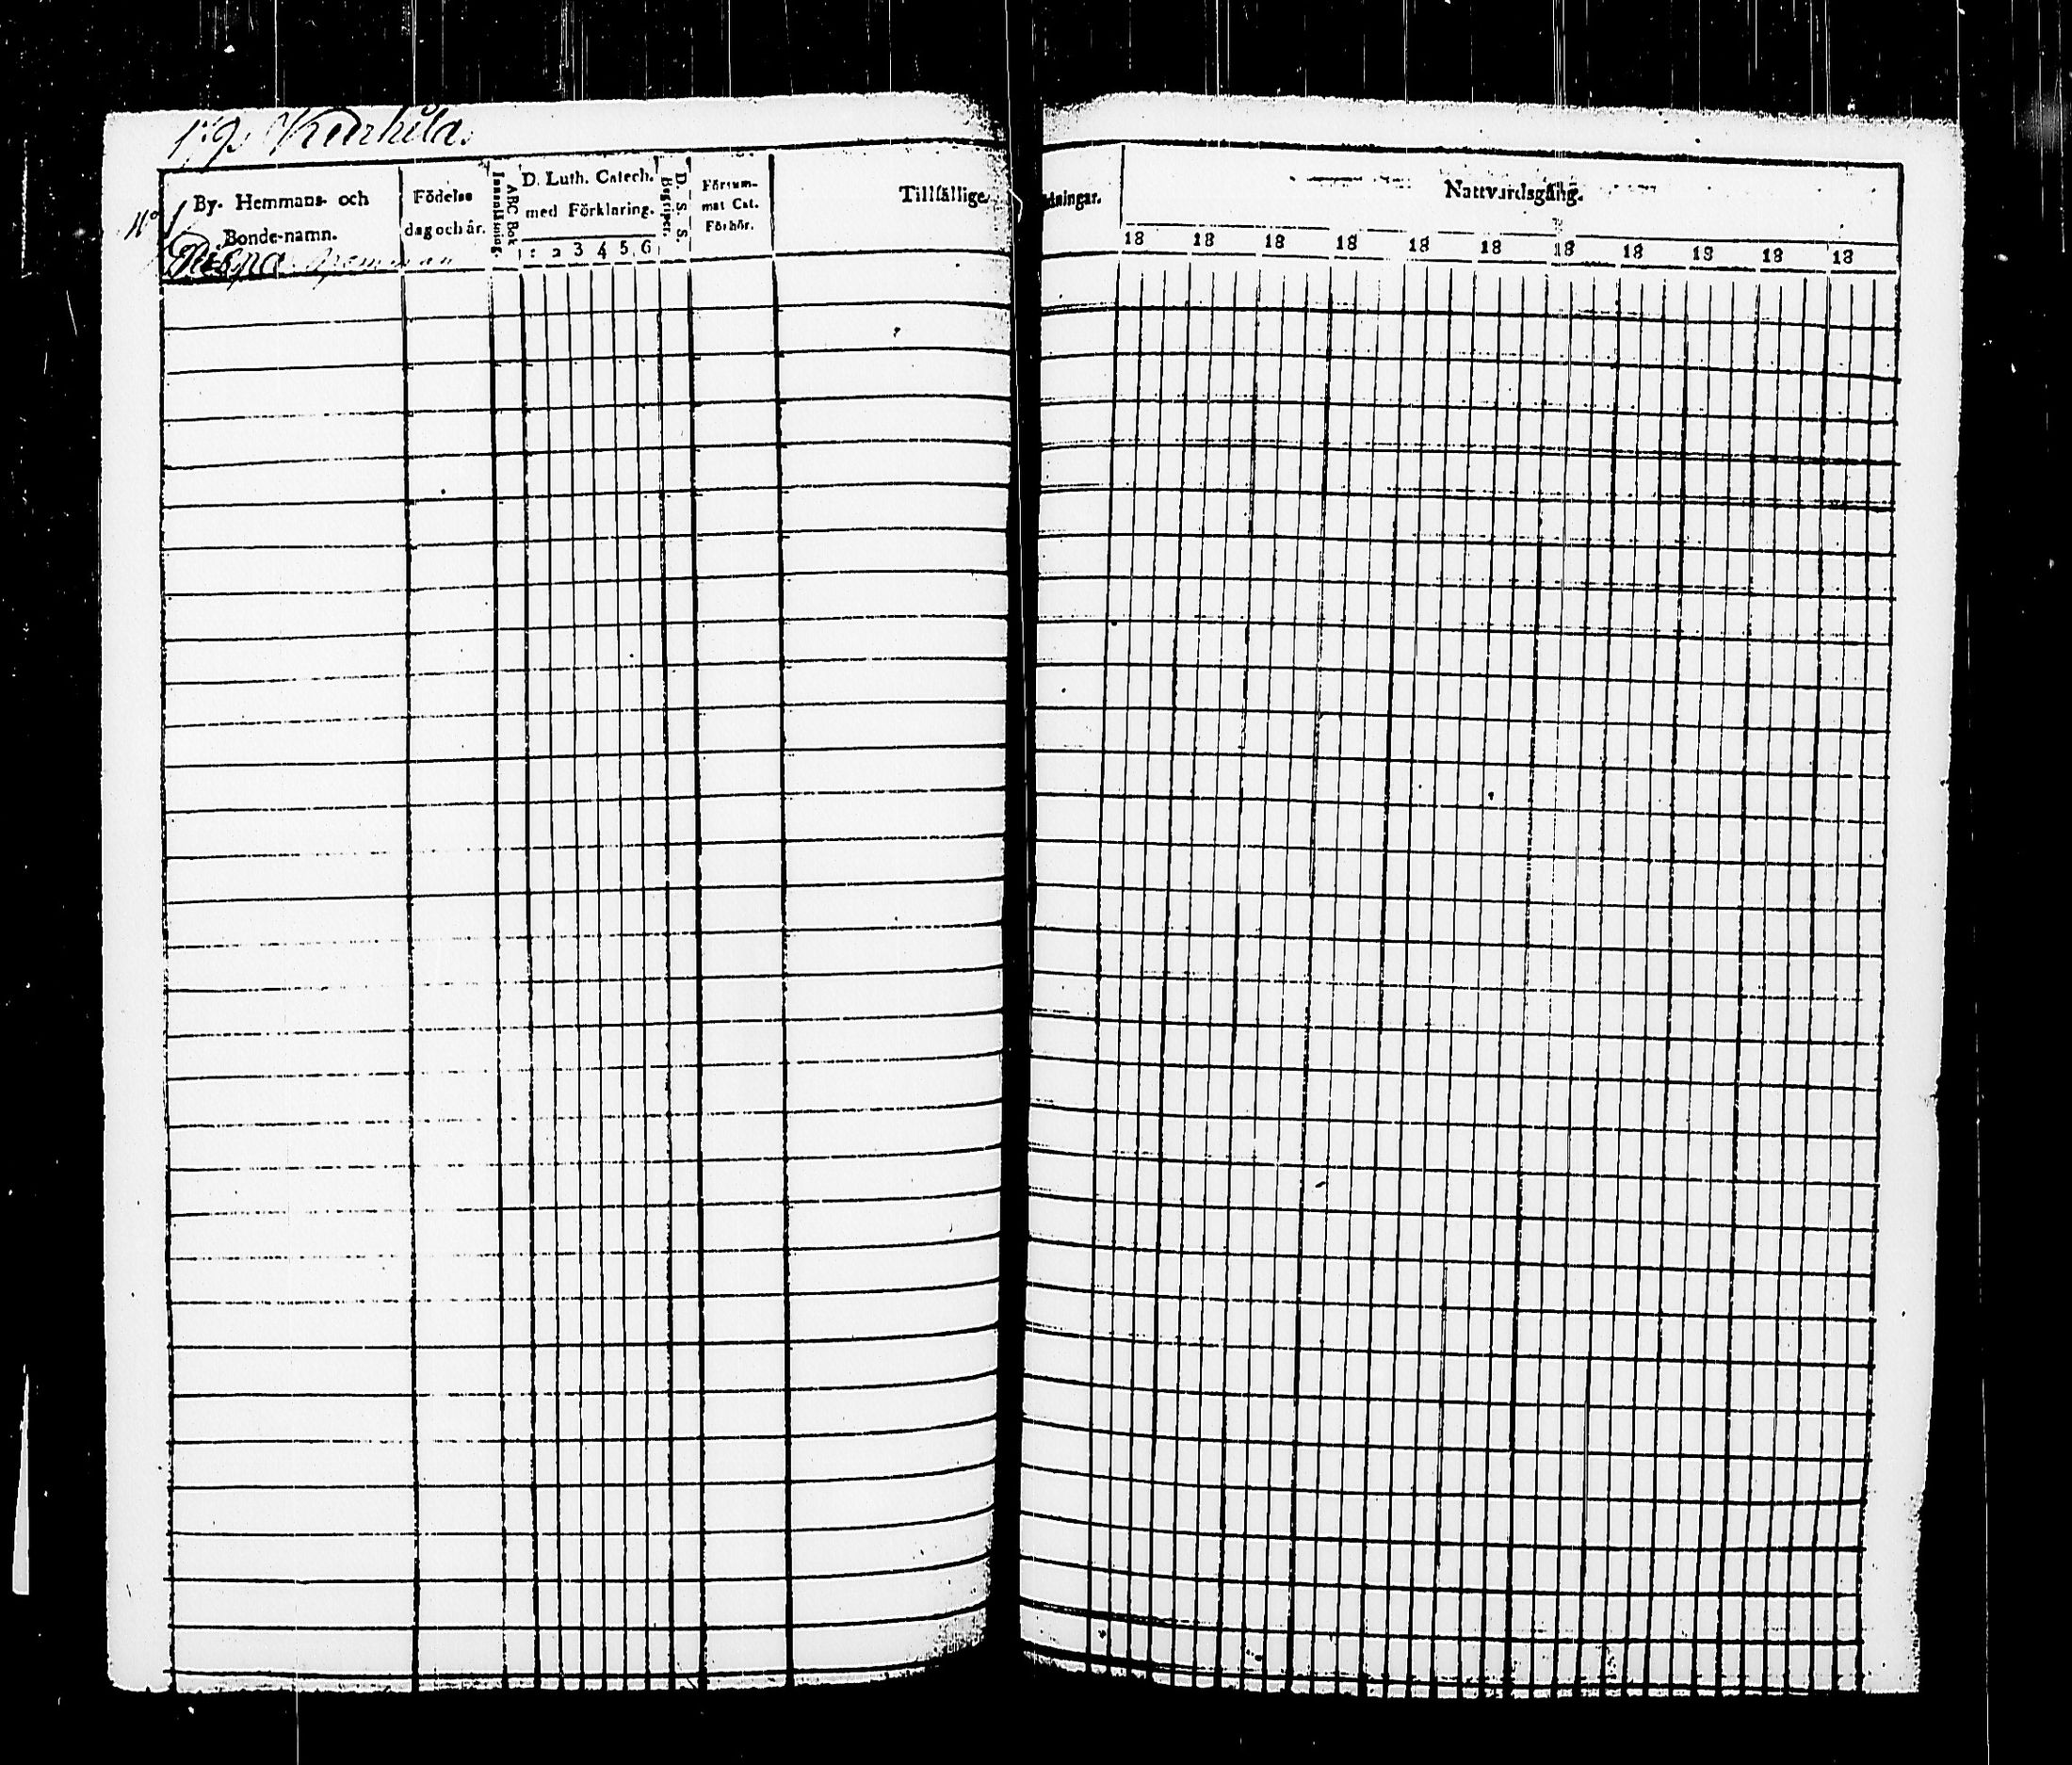 179. Keerhilä.
By- Hemmans- och
Bonde-namn.
Födelse
dag och år.
Innanläsning.
ABC Bok
D. Luth. Catech.
med Förklaring.
1 2 3 4 5 6
Begriper.
D. S. S.
Försum-
mat Cat.
Förhör.
Tillfällige
dningar.
Nattvardsgång.
18 18 18 18 18 18 18 18 18 18 18
No 1